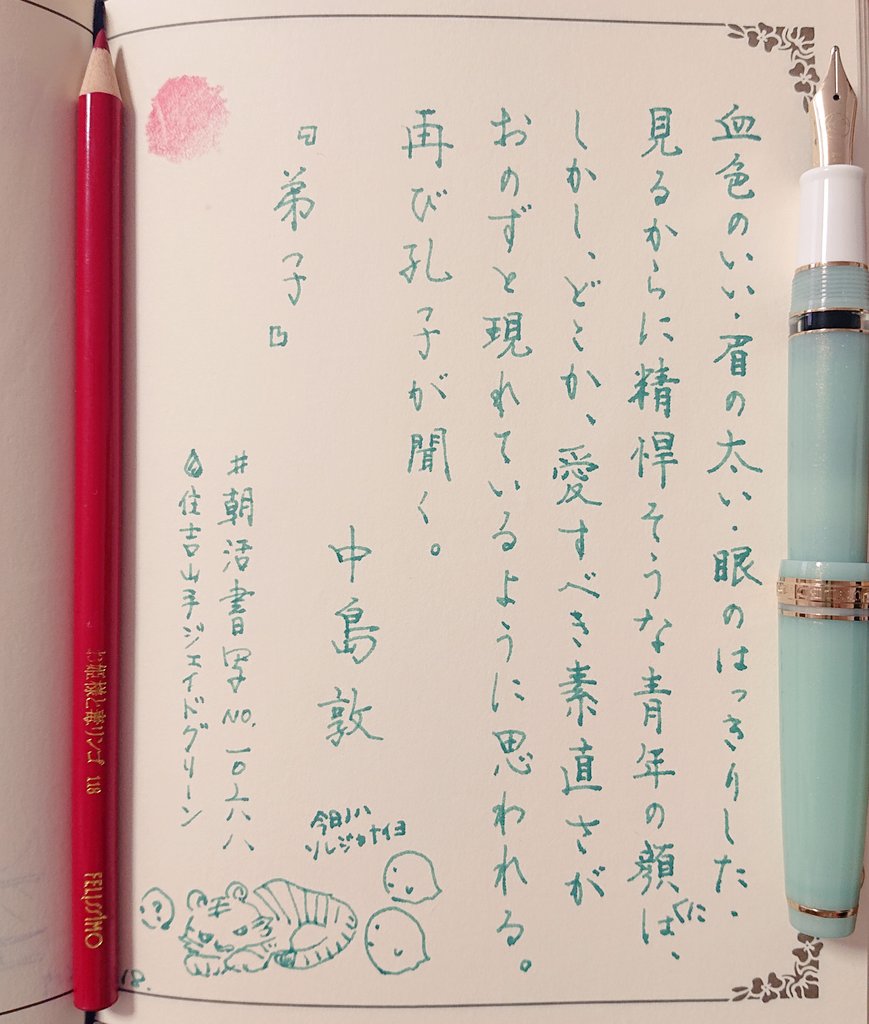 血色のいい・眉の太い・眼のはっきりした・
見るからに精悍そうな青年の顔には、
しかし、どこか、愛すべき素直さが
おのずと現れているように思われる。
再び孔子が聞く。
中島敦
『弟子』
#朝活書写 NO.一〇六八
住吉山手ジェイドグリーン
今日ハ
ソレジャナイヨ
お姫様と毒リンゴ 118 FELISSIMO
18.